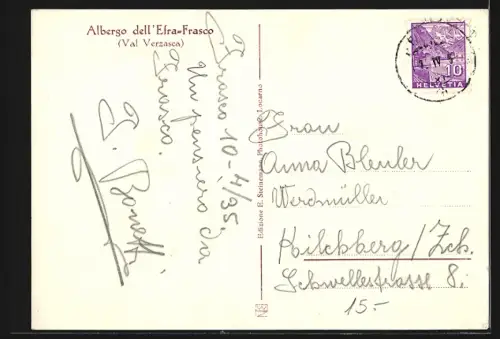 Albergo dell'Efra=Frasco
(Val Verzasca)
Frasco 10-4/35.
Un pensiero da
Frasco.
Edizione E. Steinemann, Photohaus, Locarno
Frau
Anna Bleuler
Werdmüller
Kilchberg/Zch.
Schwellestrasse 8.
15.-
10
HELVETIA
IV